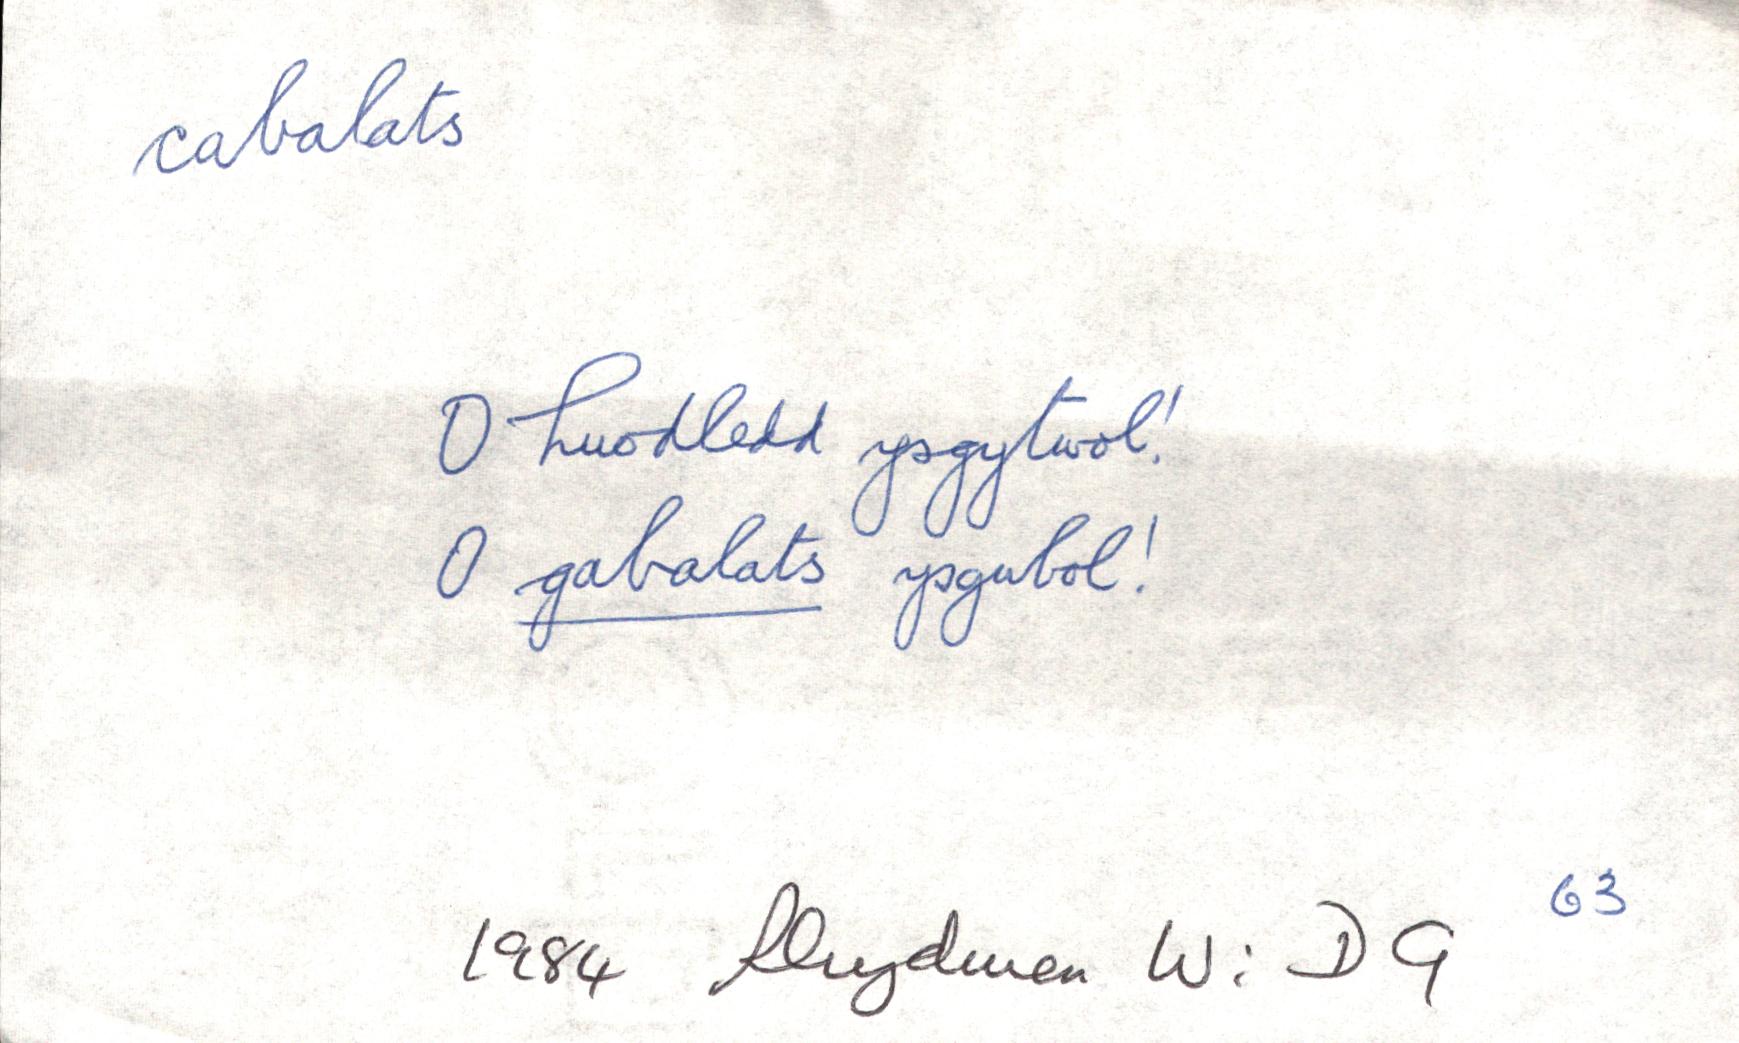 cabalats
O huodledd ysgytwol!
O gabalats ysgubol!
63
1984 Rhydwen W: D G